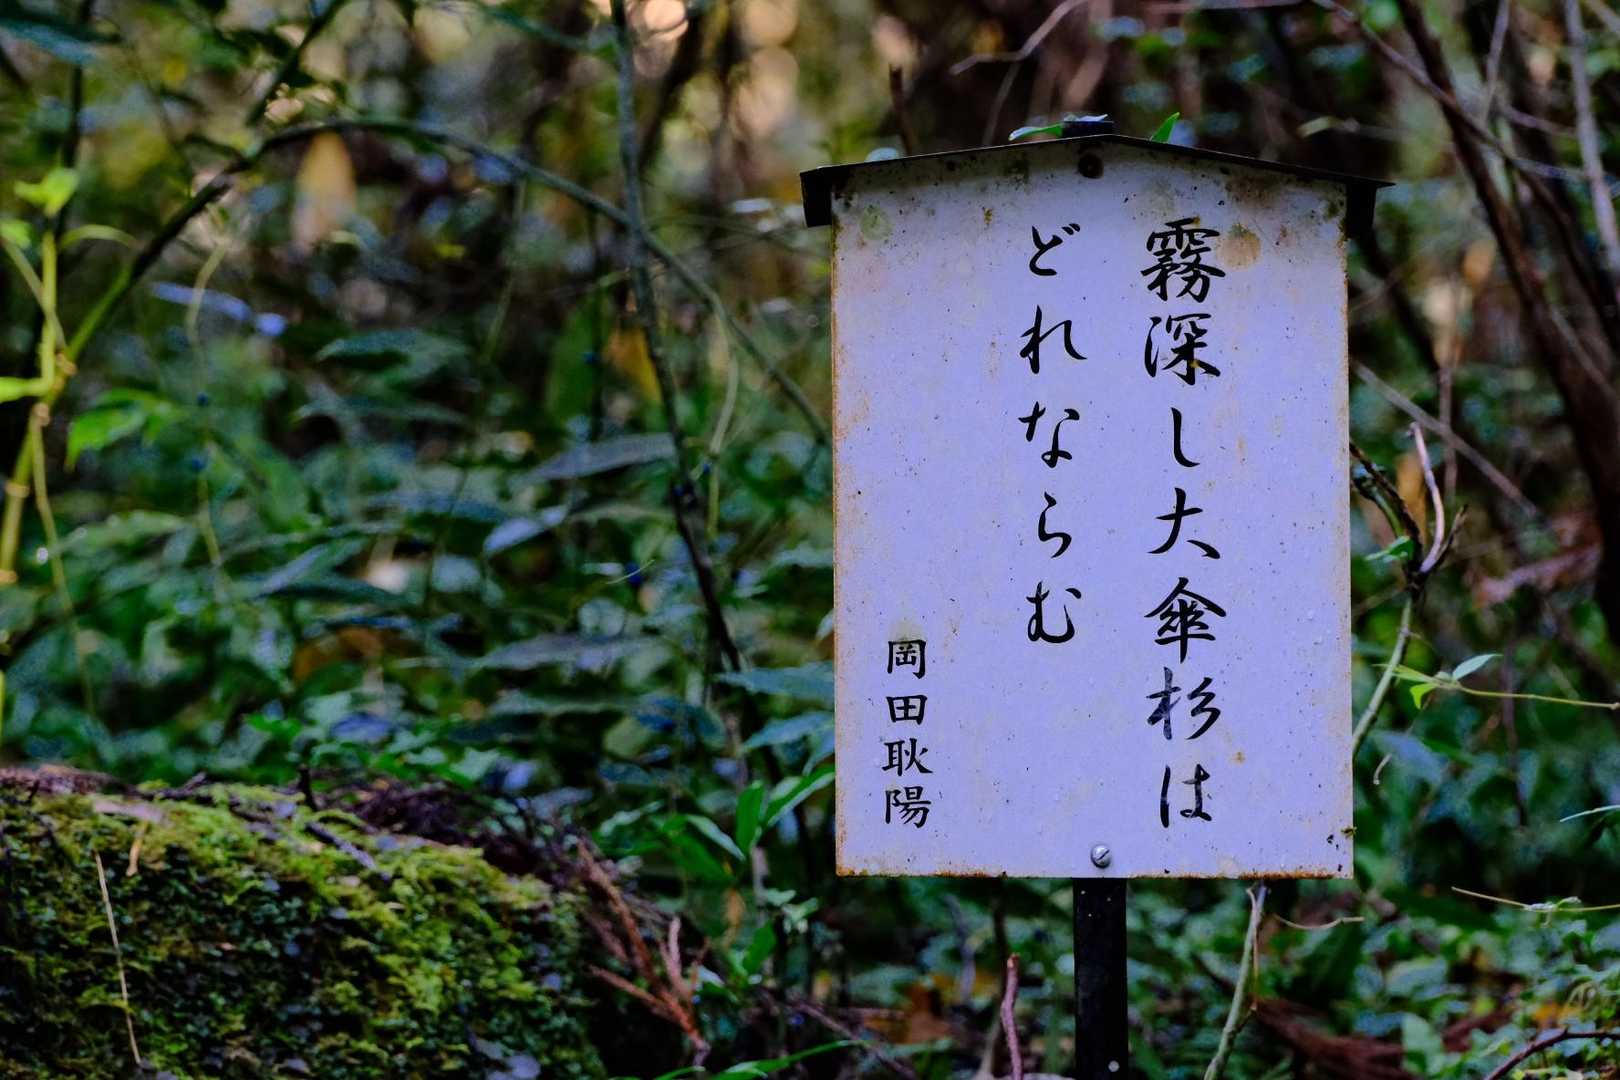 霧深し大傘杉は
どれならむ
岡田耿陽